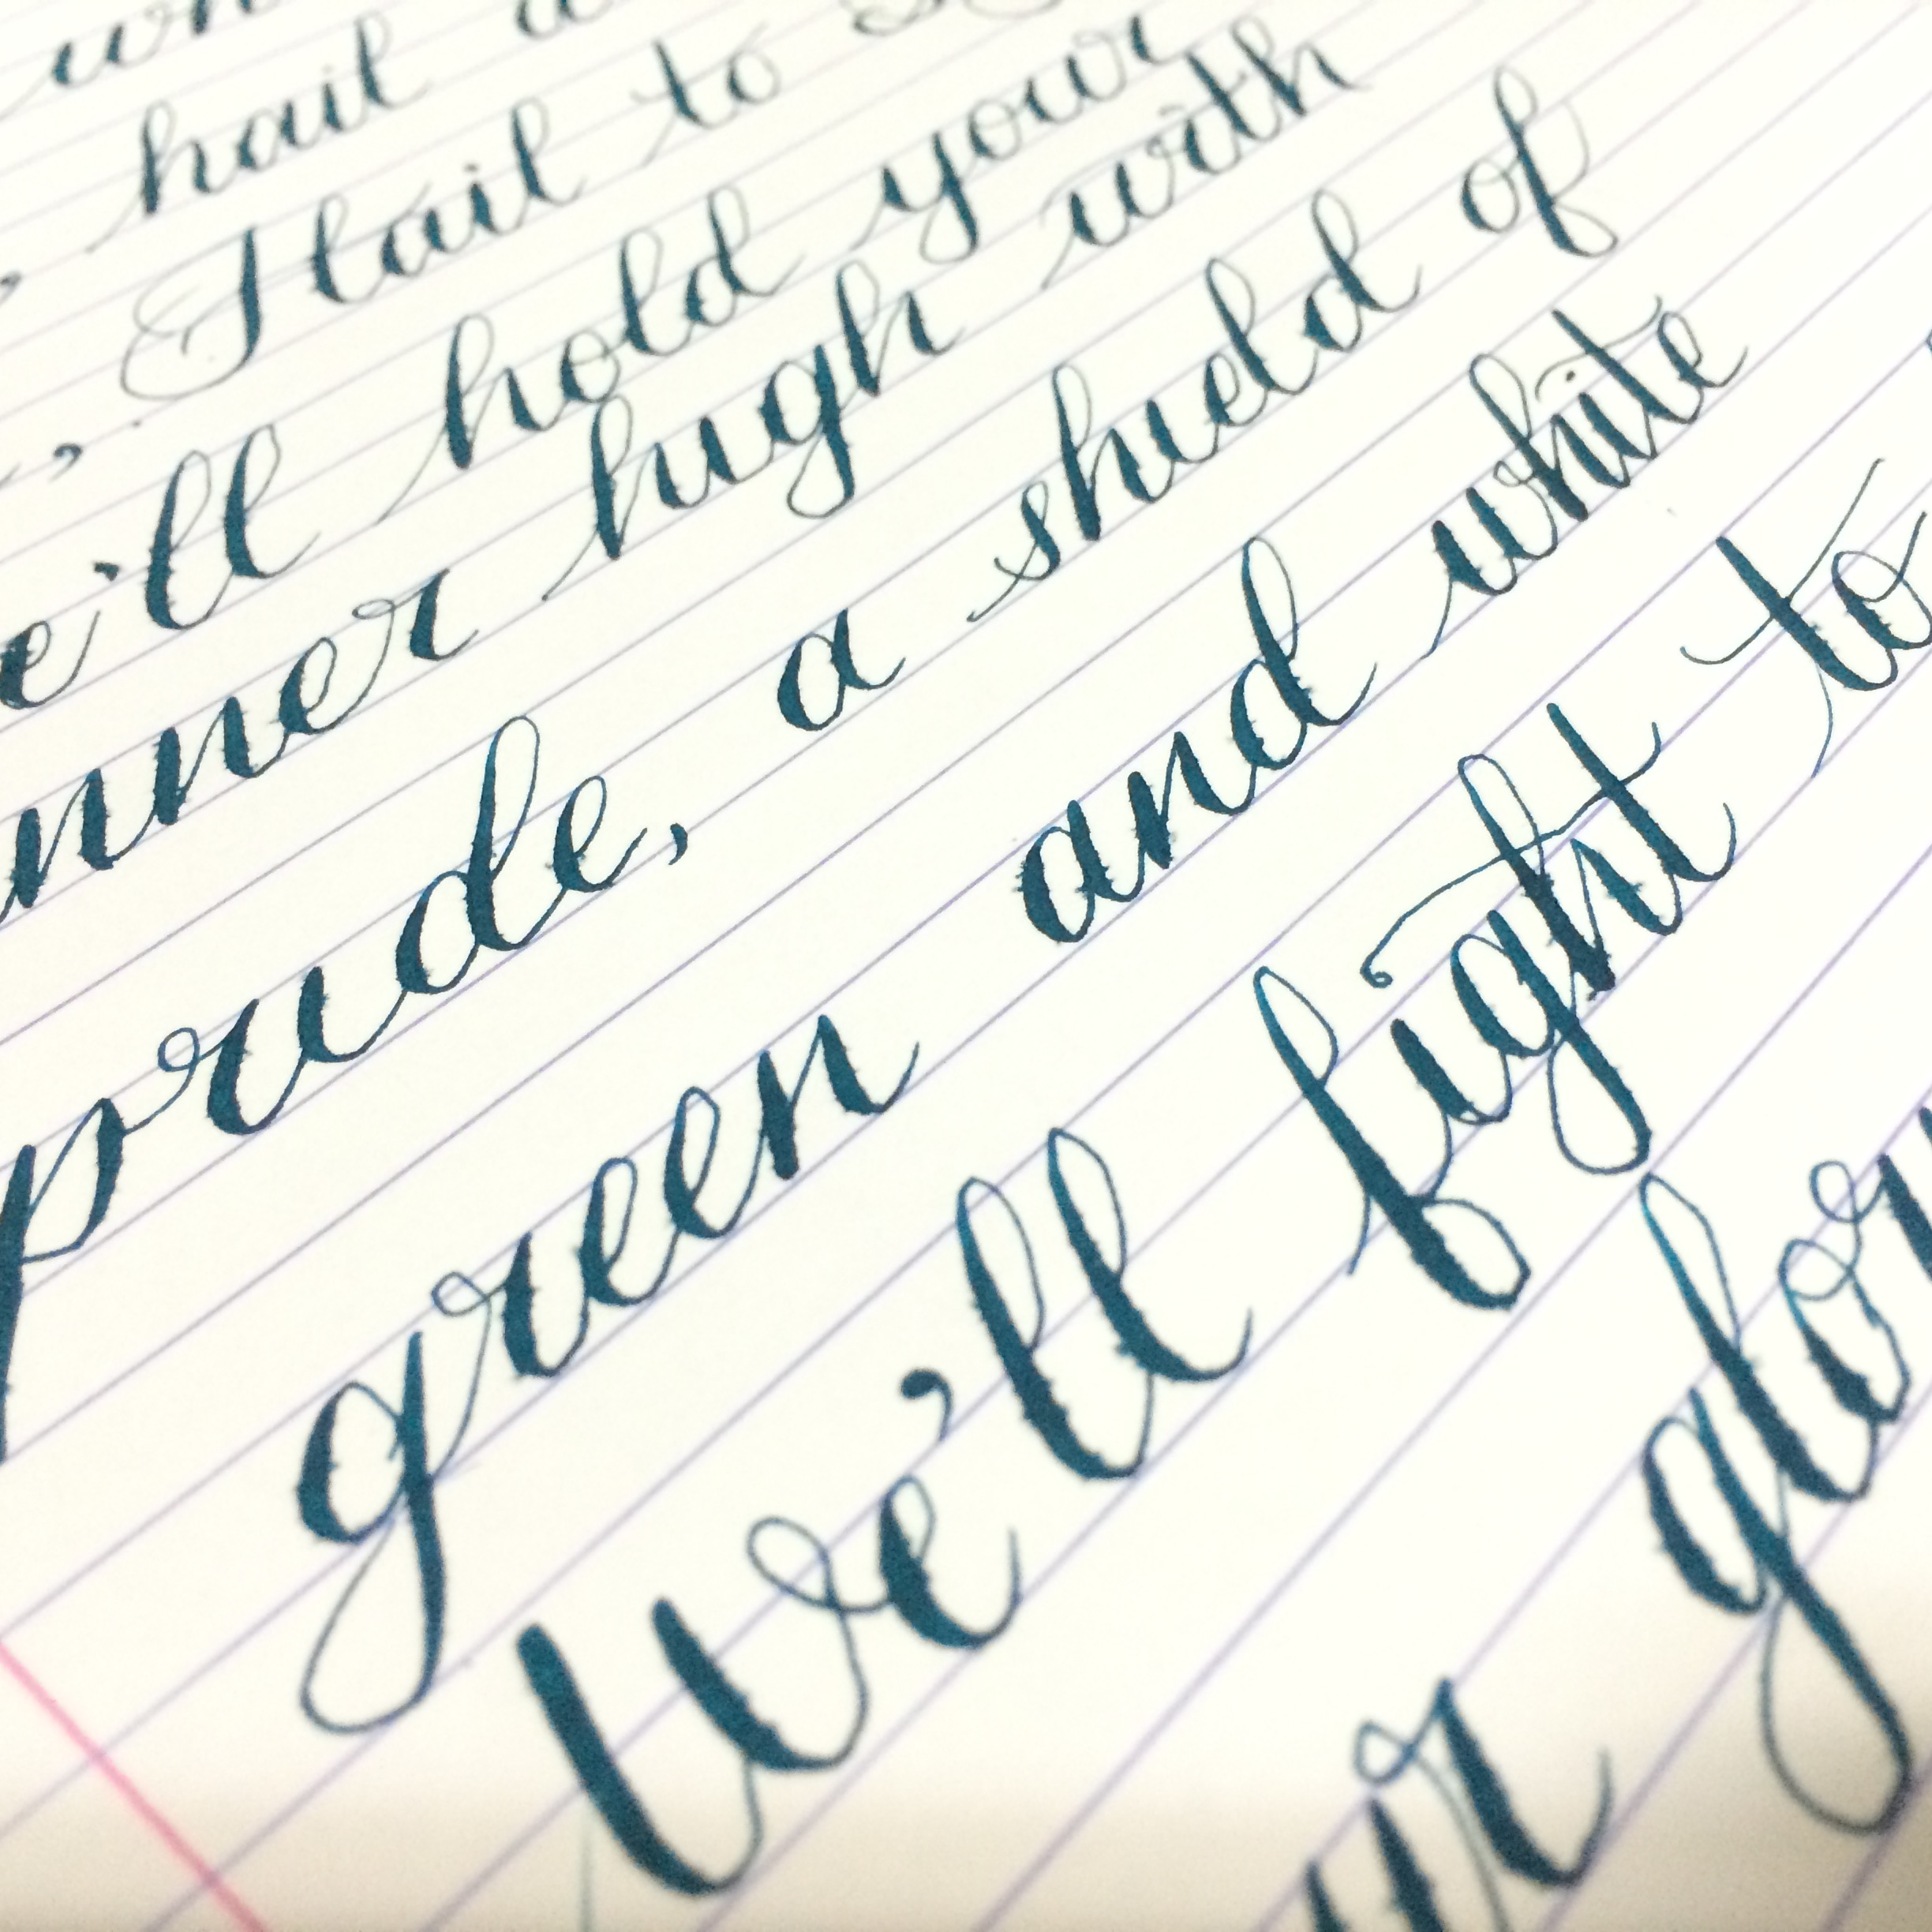 hail
Hail to
e'll hold your
nner high with
pride, a shield of
green and white
We'll fight to
ur glor